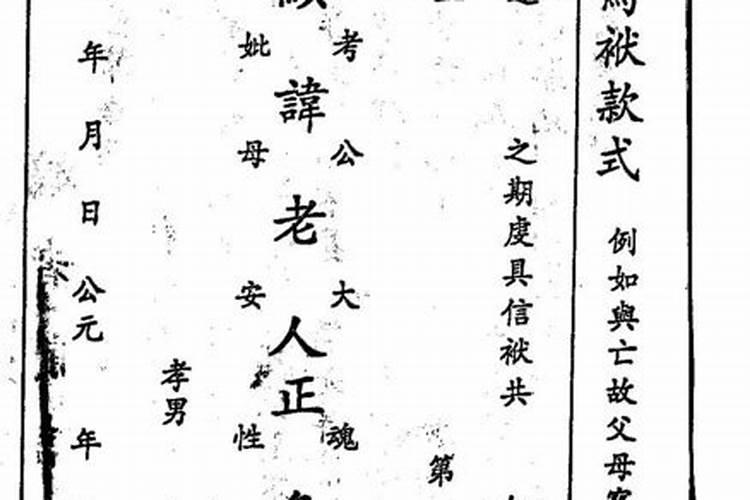 袱款式　例如與亡故父母
之期虔具信袱共
第
考　公　大　魂
諱老人正
妣　母　安　性
孝男
年月日公元　年